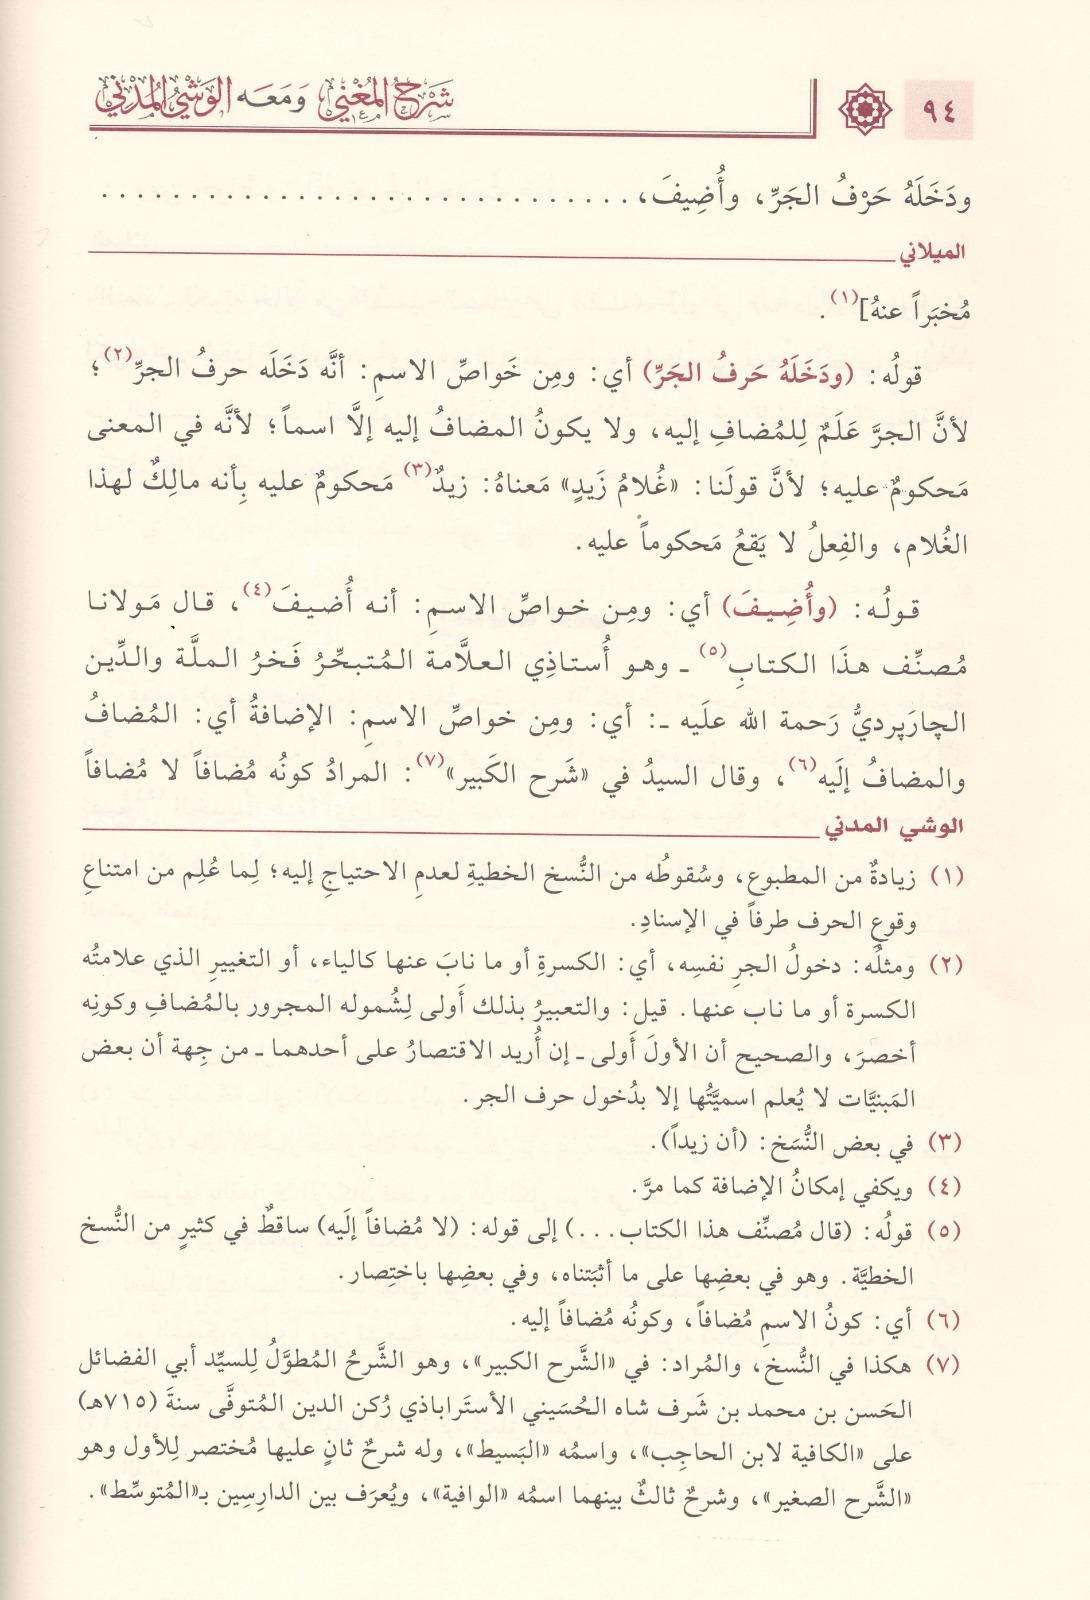 ٩٤
شَرْحُ المُغْنِي وَمَعَه الوَشْيُ المَدَنِي
ودَخَلَهُ حَرْفُ الجَرِّ، وأُضِيفَ، . . . . . . . . . . . . . . . . . . . . . . . . . . . . .
الميلاني
مُخبَراً عنهُ](١).
قولُه: (ودَخَلَهُ حَرفُ الجَرِّ) أي: ومِن خَواصِّ الاسمِ: أنَّه دَخَلَه حرفُ الجرِّ(٢)؛
لأنَّ الجرَّ عَلَمٌ لِلمُضافِ إليه، ولا يكونُ المضافُ إليه إلَّا اسماً؛ لأنَّه في المعنى
مَحكومٌ عليه؛ لأنَّ قولَنا: «غُلامُ زَيدٍ» مَعناهُ: زيدٌ(٣) مَحكومٌ عليه بِأنه مالِكٌ لهذا
الغُلام، والفِعلُ لا يَقعُ مَحكوماً عليه.
قولُه: (وأُضِيفَ) أي: ومِن خواصِّ الاسمِ: أنه أُضيفَ(٤)، قال مَولانا
مُصنِّف هذَا الكتابِ(٥) ـ وهو أُستاذِي العلاَّمة المُتبحِّرُ فَخرُ الملَّة والدِّين
الچارَپرديُّ رَحمة الله علَيه ـ: أي: ومِن خواصِّ الاسمِ: الإضافةُ أي: المُضافُ
والمضافُ إلَيه(٦)، وقال السيدُ في «شَرح الكَبير»(٧): المرادُ كونُه مُضافاً لا مُضافاً
الوشي المدني
(١) زيادةٌ من المطبوع، وسُقوطُه من النُّسخ الخطيةِ لعدمِ الاحتياجِ إليه؛ لِما عُلِم من امتناعِ
وقوعِ الحرف طرفاً في الإسنادِ.
(٢) ومثلُه: دخولُ الجرِ نفسِه، أي: الكسرةِ أو ما نابَ عنها كالياء، أو التغييرِ الذي علامتُه
الكسرة أو ما ناب عنها. قيل: والتعبيرُ بذلك أَولى لِشُموله المجرور بالمُضافِ وكونِه
أخصرَ، والصحيح أن الأولَ أَولى ـ إن أُريد الاقتصارُ على أحدهما ـ من جِهة أن بعض
المَبنيَّات لا يُعلم اسميَّتُها إلا بدُخول حرف الجر.
(٣) في بعض النُّسَخ: (أن زيداً).
(٤) ويكفي إمكانُ الإضافة كما مرَّ.
(٥) قولُه: (قال مُصنِّف هذا الكتاب. . .) إلى قوله: (لا مُضافاً إلَيه) ساقطٌ في كثيرٍ من النُّسخ
الخطيَّة. وهو في بعضِها على ما أثبَتناه، وفي بعضِها باختِصار.
(٦) أي: كونُ الاسمِ مُضافاً، وكونُه مُضافاً إليه.
(٧) هكذا في النُّسخ، والمُراد: في «الشَّرح الكبير»، وهو الشَّرحُ المُطوَّلُ لِلسيِّد أبي الفضائل
الحَسن بن محمد بن شَرف شاه الحُسَيني الأستَراباذي رُكن الدين المُتوفَّى سنةَ (٧١٥هـ)
على «الكافية لابن الحاجِب»، واسمُه «البَسيط»، وله شرحٌ ثانٍ عليها مُختصر لِلأول وهو
«الشَّرح الصغير»، وشرحٌ ثالثٌ بينهما اسمُه «الوافية»، ويُعرَف بين الدارِسِين بـ«المُتوسِّط».